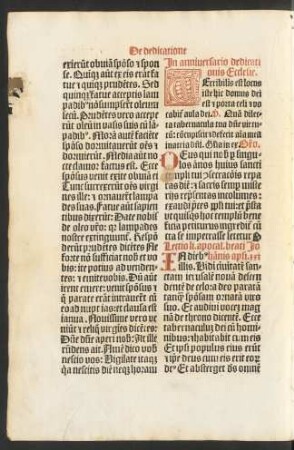 De dedicatione
exierūt obuiā spōso ⁊ spon
se. Quīqȝ aūt ex eis erāt fa
tue ⁊ quīqȝ prudētes. Sed
quīqȝ fatue acceptis lam
padibꝰ nō sumpserūt oleum
secū. Prudētes vero accepe
rūt oleum in vasis suis cū lā
padibꝰ. Morā aūt faciēte
spōso dormitauerūt oēs ⁊
dormierūt. Media aūt no
cte clamor factus est. Ecce
spōsus venit exite obuiā ei
Tunc surrexerūt oēs virgi
nes ille: ⁊ ornauerūt lampa
des suas. Fatue aūt sapien
tibus dixerūt: Date nobis
de oleo vr̄o: qꝛ lampades
nostre extinguunt. Respō
derūt prudētes dicētes Ne
forte nō sufficiat nob̄ et vo
bis: ite potius ad venden
tes: ⁊ emite vobis. Dū aūt
irent emere: venit spōsus ⁊
q̄ parate erāt intrauerūt cū
eo ad nuptias: et clausa est
ianua. Nouissime vero ve
niūt ⁊ reliq̄ virgīes dicētes:
Dn̄e dn̄e aperi nob̄: At ille
rn̄dens ait. Amē dico vob̄
nescio vos: Vigilate itaqȝ
qꝛ nescitis diē neqȝ horam
In anniuersario dedicati
onis Ecclesie.
Erribilis est locus
iste hic domus dei
est ⁊ porta celi ⁊ vo
cabit̄ aula dei. Quā dilec
ta tabernacula tua dn̄e virtu
tū: cōcupiscit ⁊ deficit aīa mea
in atria dn̄i. Gloria. Oro.
Deus qui nobis p̄ singu
los annos huius sancti
templi tui ꝯsecratōis repa
ras diē: ⁊ sacris semp̄ miste
rijs repn̄tas incolumes: ⁊
exaudi p̄ces ppl̄i tui: et p̄sta
vt quisqȝ hoc templū benefi
cia petiturus ingredit̄ cun
cta se impetrasse letetur P
Lectio li. apocal. beati Jo
hānis apl̄i. xxi
In diebꝰ
illis. Vidi ciuitatē sanc
tam ierusalē nouā descen
dentē de celo a deo paratā
sicut sponsam ornatā viro
suo: Et audiui vocē mag
nā de throno dicentē. Ecce
tabernaculū dei cū homi
nibus: ⁊ habitabit cum eis
Et ipsi populus eius erūt
⁊ ip̄e deus cum eis erit eoꝝ
de⁹ Et absterget de⁹ omnē